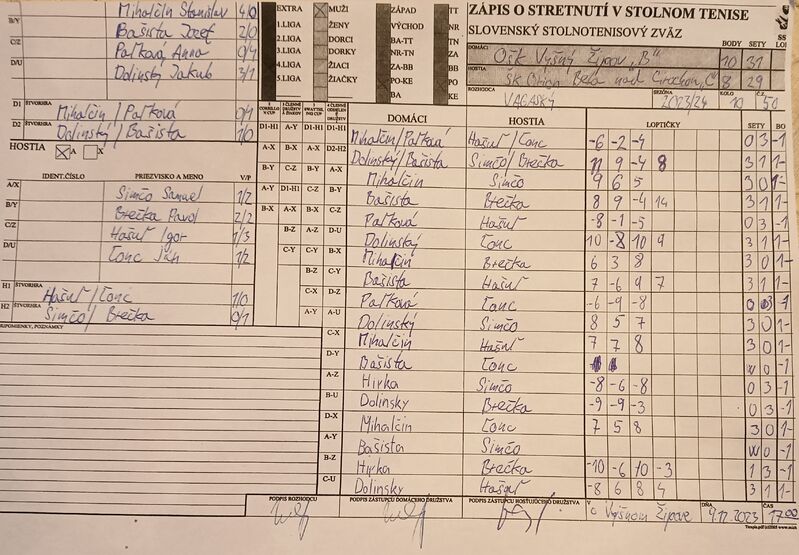 Mihalčin Stanislav 4/0
B/Y Bašista Jozef 2/0
C/Z Paľková Anna 0/4
D/U Dolinský Jakub 3/1
EXTRA MUŽI ZÁPAD TT
1.LIGA ŽENY VÝCHOD NR
2.LIGA DORCI BA-TT TN
3.LIGA DORKY NR-TN ZA
4.LIGA ŽIACI ZA-BB BB
5.LIGA ŽIAČKY PO-KE PO
BA KE
ZÁPIS O STRETNUTÍ V STOLNOM TENISE
SLOVENSKÝ STOLNOTENISOVÝ ZVÄZ
DOMÁCI BODY SETY
OŠK Vyšný Žipov "B" 10 31
HOSTIA
ŠK Orion Belá nad Cirochou "C" 8 29
ROZHODCA SEZÓNA KOLO Č.Z.
VAGASKÝ 2023/24 10 50
D1 ŠTVORHRA Mihalčin/Paľková 0/1
D2 ŠTVORHRA Dolinský/Bašista 1/0
HOSTIA A X
IDENT.ČÍSLO PRIEZVISKO A MENO V/P
A/X Simčo Samuel 1/2
B/Y Brečka Pavol 2/2
C/Z Hašuľ Igor 1/3
D/U Čonc Ján 1/2
H1 ŠTVORHRA Hašuľ/Čonc 1/0
H2 ŠTVORHRA Simčo/Brečka 0/1
PRIPOMIENKY, POZNÁMKY
DOMÁCI HOSTIA LOPTIČKY SETY
Mihalčin/Paľková Hašuľ/Čonc -6 -2 -4 0 3 -1
Dolinský/Bašista Simčo/Brečka 11 9 -4 8 3 1 1-
Mihalčin Simčo 9 6 5 3 0 1-
Bašista Brečka 8 9 -4 14 3 1 1-
Paľková Hašuľ -8 -1 -5 0 3 -1
Dolinský Čonc 10 -8 10 9 3 1 1-
Mihalčin Brečka 6 3 8 3 0 1-
Bašista Hašuľ 7 -6 9 7 3 1 1-
Paľková Čonc -6 -9 -8 0 3 -1
Dolinský Simčo 8 5 7 3 0 1-
Mihalčin Hašuľ 7 7 8 3 0 1-
Bašista Čonc W0 -1
Hirka Simčo -8 -6 -8 0 3 -1
Dolinsky Brečka -9 -9 -3 0 3 -1
Mihalčin Čonc 7 5 8 3 0 1-
Bašista Simčo W0 -1
Hirka Brečka -10 -6 10 -3 1 3 -1
Dolinsky Hašuľ -8 6 8 4 3 1 1-
PODPIS ROZHODCU PODPIS ZÁSTUPCU DOMÁCEHO DRUŽSTVA PODPIS ZÁSTUPCU HOSŤUJÚCEHO DRUŽSTVA V DŇA ČAS
Vyšnom Žipove 9.12.2023 17.00